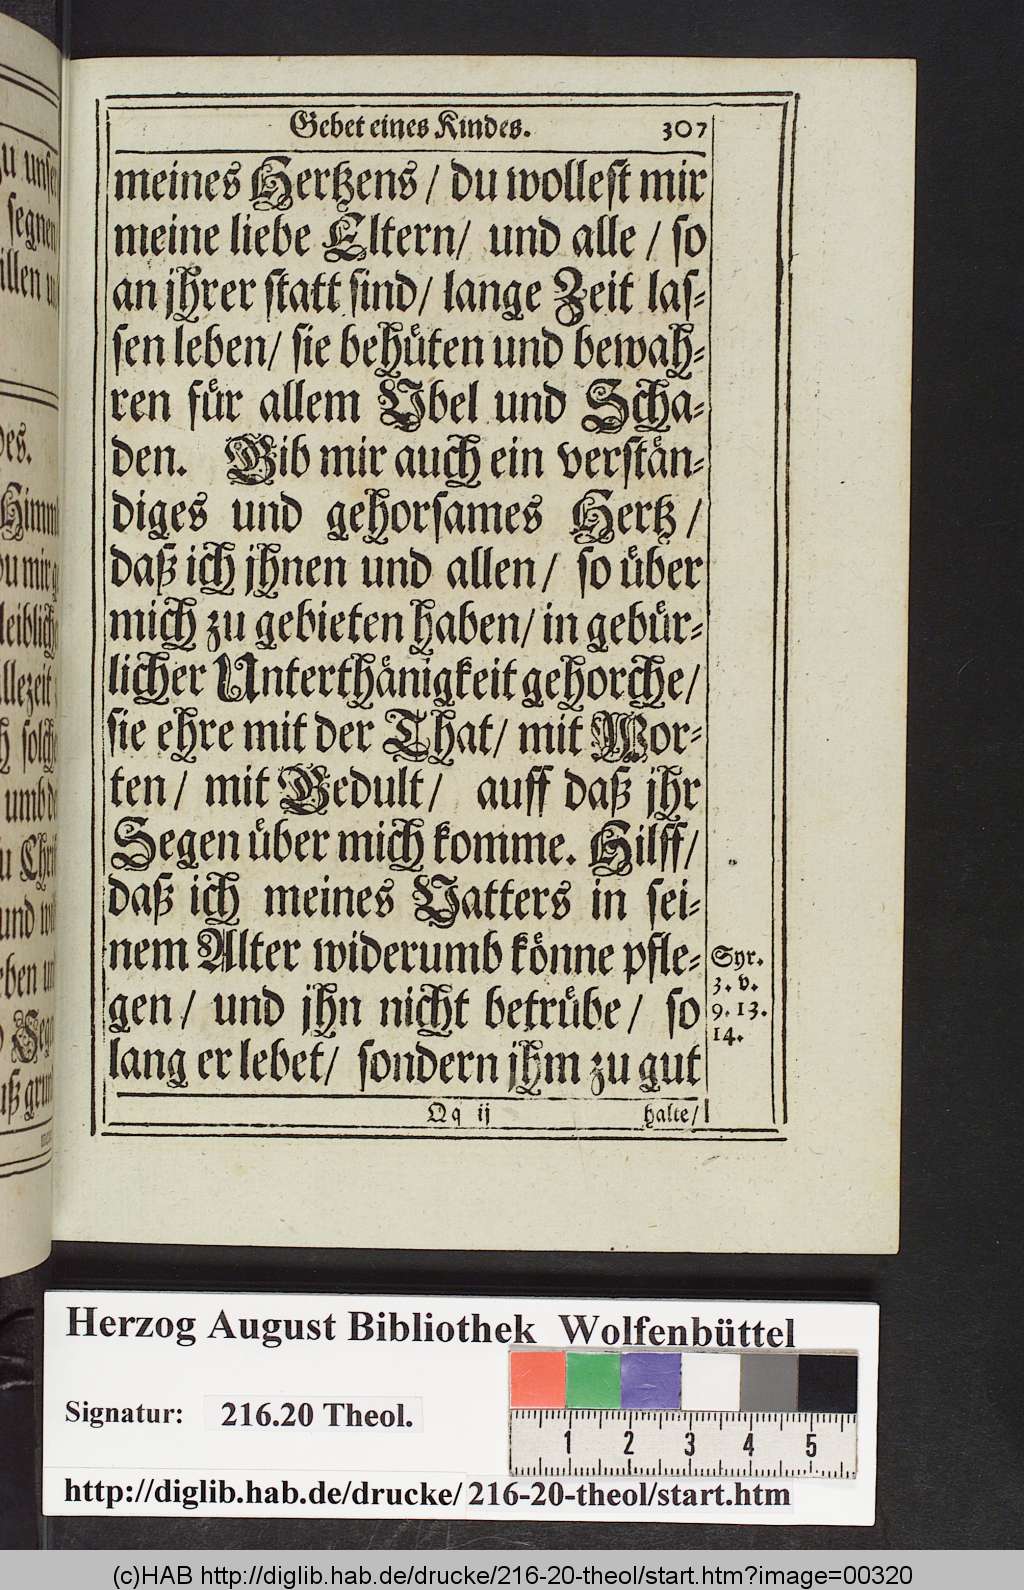 zu unse
segnen
illen un
des.
Himml
du mir g
leiblich
llezeit
h solche
umb d
u Chri
und w
eben un
Sege
uß grun
Gebet eines Kindes. 307
meines Hertzens / du wollest mir
meine liebe Eltern / und alle / so
an jhrer statt sind / lange Zeit las-
sen leben / sie behüten und bewah-
ren für allem Vbel und Scha-
den. Gib mir auch ein verstän-
diges und gehorsames Hertz /
daß ich jhnen und allen / so über
mich zu gebieten haben / in gebür-
licher Unterthänigkeit gehorche /
sie ehre mit der That / mit Wor-
ten / mit Gedult / auff daß jhr
Segen über mich komme. Hilff /
daß ich meines Vatters in sei-
nem Alter widerumb könne pfle-
gen / und jhn nicht betrübe / so
lang er lebet / sondern jhm zu gut
Syr.
3. v.
9. 13.
14.
Qq ij halte /
Herzog August Bibliothek Wolfenbüttel
Signatur: 216.20 Theol.
1 2 3 4 5
http://diglib.hab.de/drucke/ 216-20-theol/start.htm
(c)HAB http://diglib.hab.de/drucke/216-20-theol/start.htm?image=00320